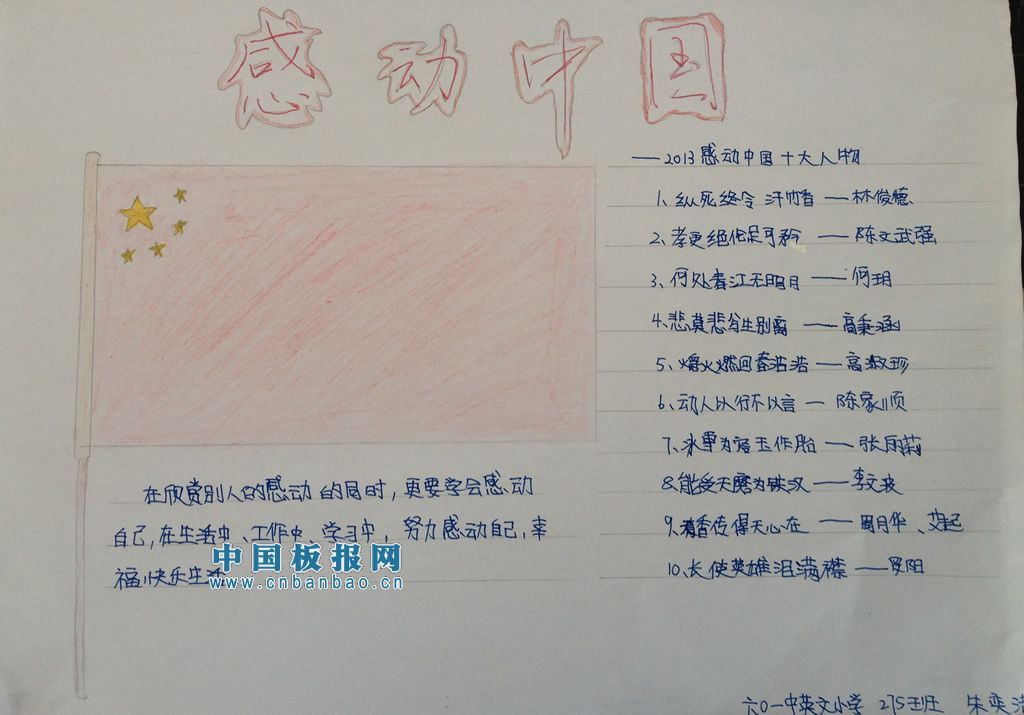 感动中国
——2013感动中国十大人物
1、纵死终令汗帼香——林俊德
2、孝更绝伦足可矜——陈文武强
3、何处春江无明月——何玥
4、悲莫悲兮生别离——高秉涵
5、爝火燃回春浩浩——高淑珍
6、动人以行不以言—陈家顺
7、冰雪为容玉作胎——张丽莉
8、能受天磨为铁汉——李文波
9、清香传得天心在——周月华、艾起
10、长使英雄泪满襟——罗阳
在欣赏别人的感动的同时，更要学会感动
自己，在生活中、工作中、学习中，努力感动自己，幸
福快乐生活
中国板报网
www.cnbanbao.cn
六〇一中英文小学 275班 朱奕